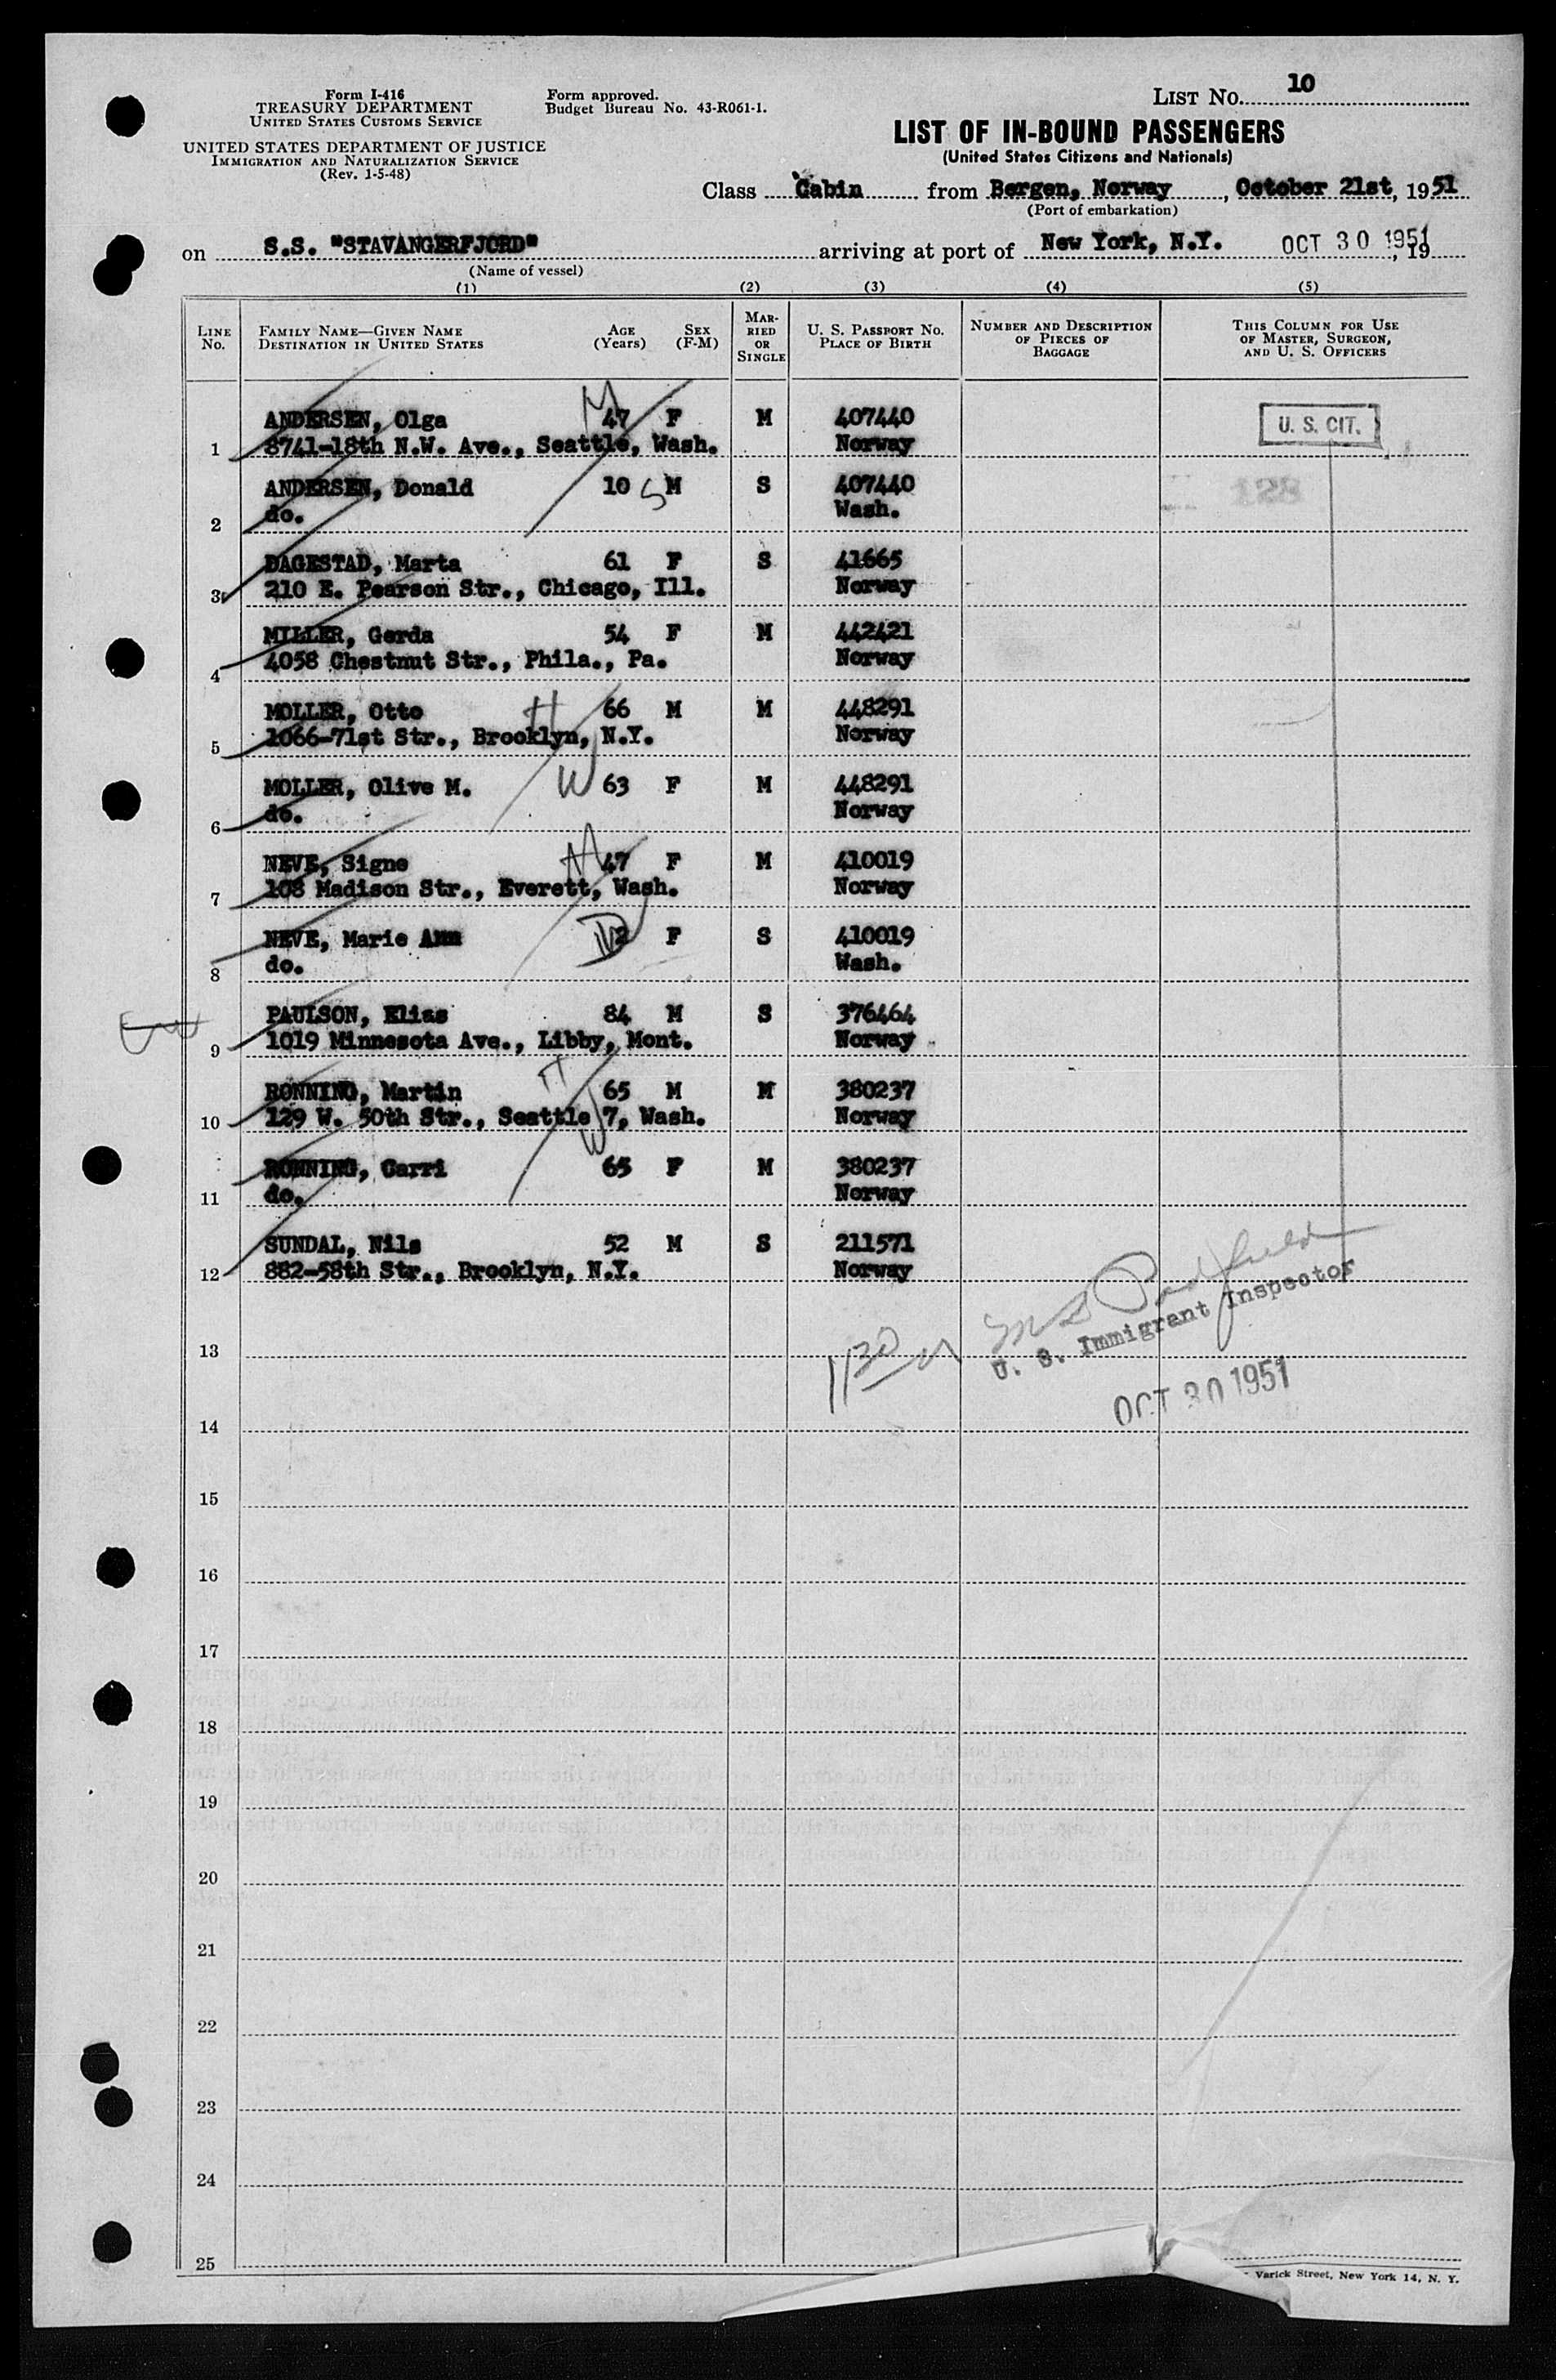 Form I-416
TREASURY DEPARTMENT
UNITED STATES CUSTOMS SERVICE
UNITED STATES DEPARTMENT OF JUSTICE
IMMIGRATION AND NATURALIZATION SERVICE
(Rev. 1-5-48)
Form approved.
Budget Bureau No. 43-R061-1.
LIST No. 10
LIST OF IN-BOUND PASSENGERS
(United States Citizens and Nationals)
Class Cabin from Bergen, Norway, October 21st, 1951
(Port of embarkation)
on S.S. "STAVANGERFJORD" arriving at port of New York, N.Y. OCT 30 1951, 19
(Name of vessel)
(1) (2) (3) (4) (5)
LINE No. FAMILY NAME—GIVEN NAME DESTINATION IN UNITED STATES AGE (Years) SEX (F-M) MARRIED OR SINGLE U. S. PASSPORT No. PLACE OF BIRTH NUMBER AND DESCRIPTION OF PIECES OF BAGGAGE THIS COLUMN FOR USE OF MASTER, SURGEON, AND U. S. OFFICERS
ANDERSEN, Olga 47 F M 407440 U. S. CIT.
1 8741-18th N.W. Ave., Seattle, Wash. Norway
ANDERSEN, Donald 10 S M S 407440
2 do. Wash.
DAGESTAD, Marta 61 F S 41665
3 210 E. Pearson Str., Chicago, Ill. Norway
MILLER, Gerda 54 F M 442421
4 4058 Chestnut Str., Phila., Pa. Norway
MOLLER, Otto H 66 M M 448291
5 1066-71st Str., Brooklyn, N.Y. Norway
MOLLER, Olive M. W 63 F M 448291
6 do. Norway
NEVE, Signe M 47 F M 410019
7 108 Madison Str., Everett, Wash. Norway
NEVE, Marie Ann D F S 410019
8 do. Wash.
PAULSON, Elias 84 M S 376464
9 1019 Minnesota Ave., Libby, Mont. Norway
RONNING, Martin H 65 M M 380237
10 129 W. 50th Str., Seattle 7, Wash. Norway
RONNING, Carri W 65 F M 380237
11 do. Norway
SUNDAL, Nils 52 M S 211571
12 882-58th Str., Brooklyn, N.Y. Norway
13 1130
U. S. Immigrant Inspector
OCT 30 1951
14
15
16
17
18
19
20
21
22
23
24
25
Varick Street, New York 14, N. Y.